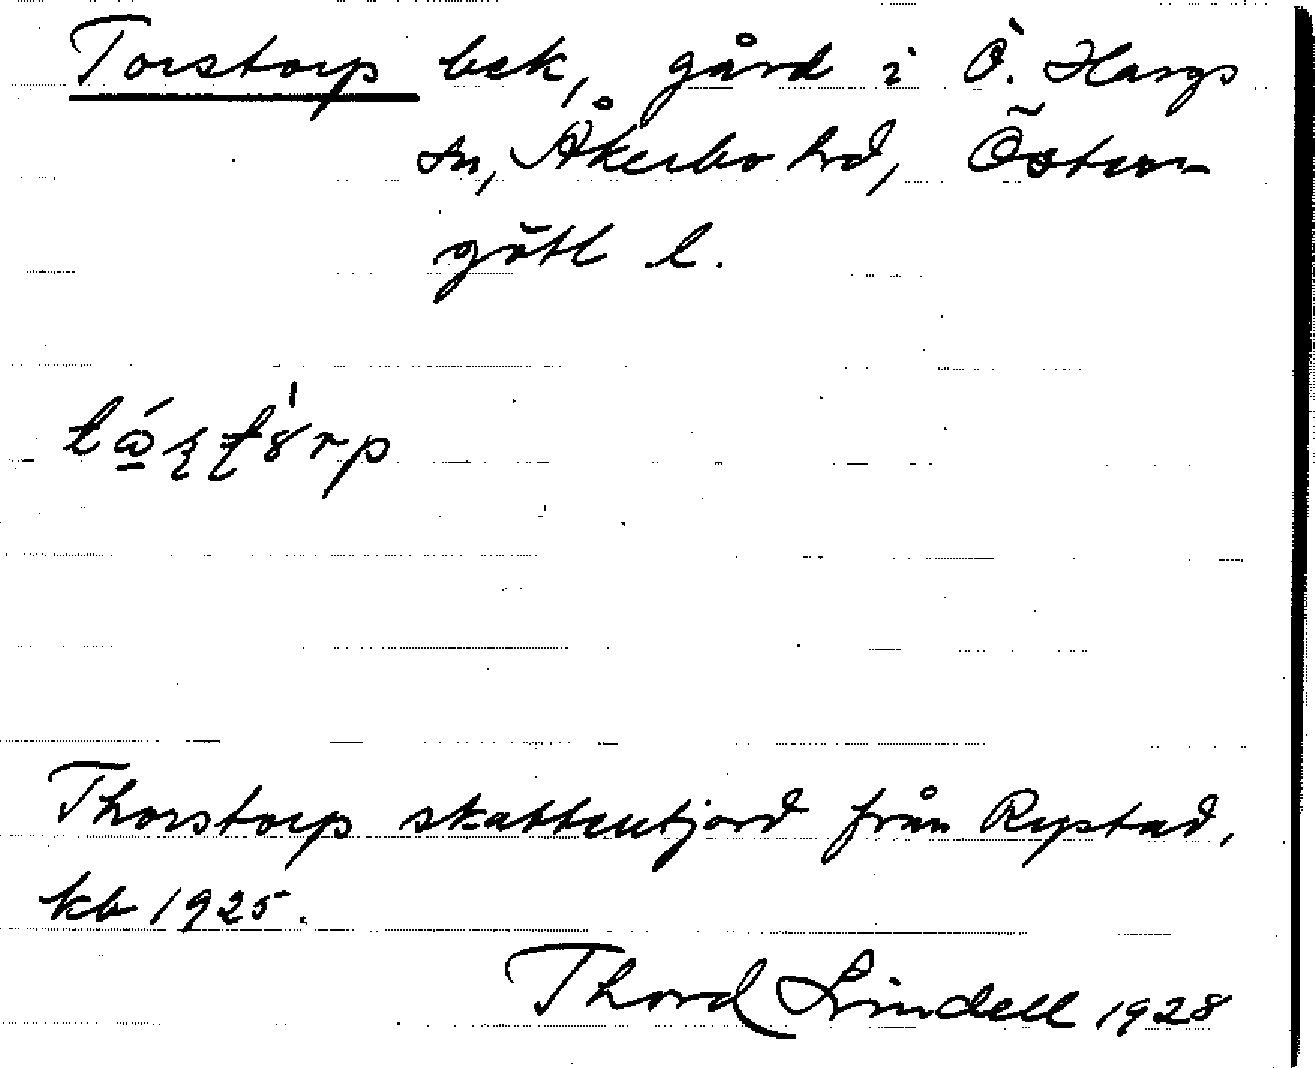 Torstorp bek, gård i Ö. Hargs
sn, Åkerbo hd, Öster-
götl l.
Thorstorp skatteutjord från Rystad,
kb 1925.
Thord Lindell 1928